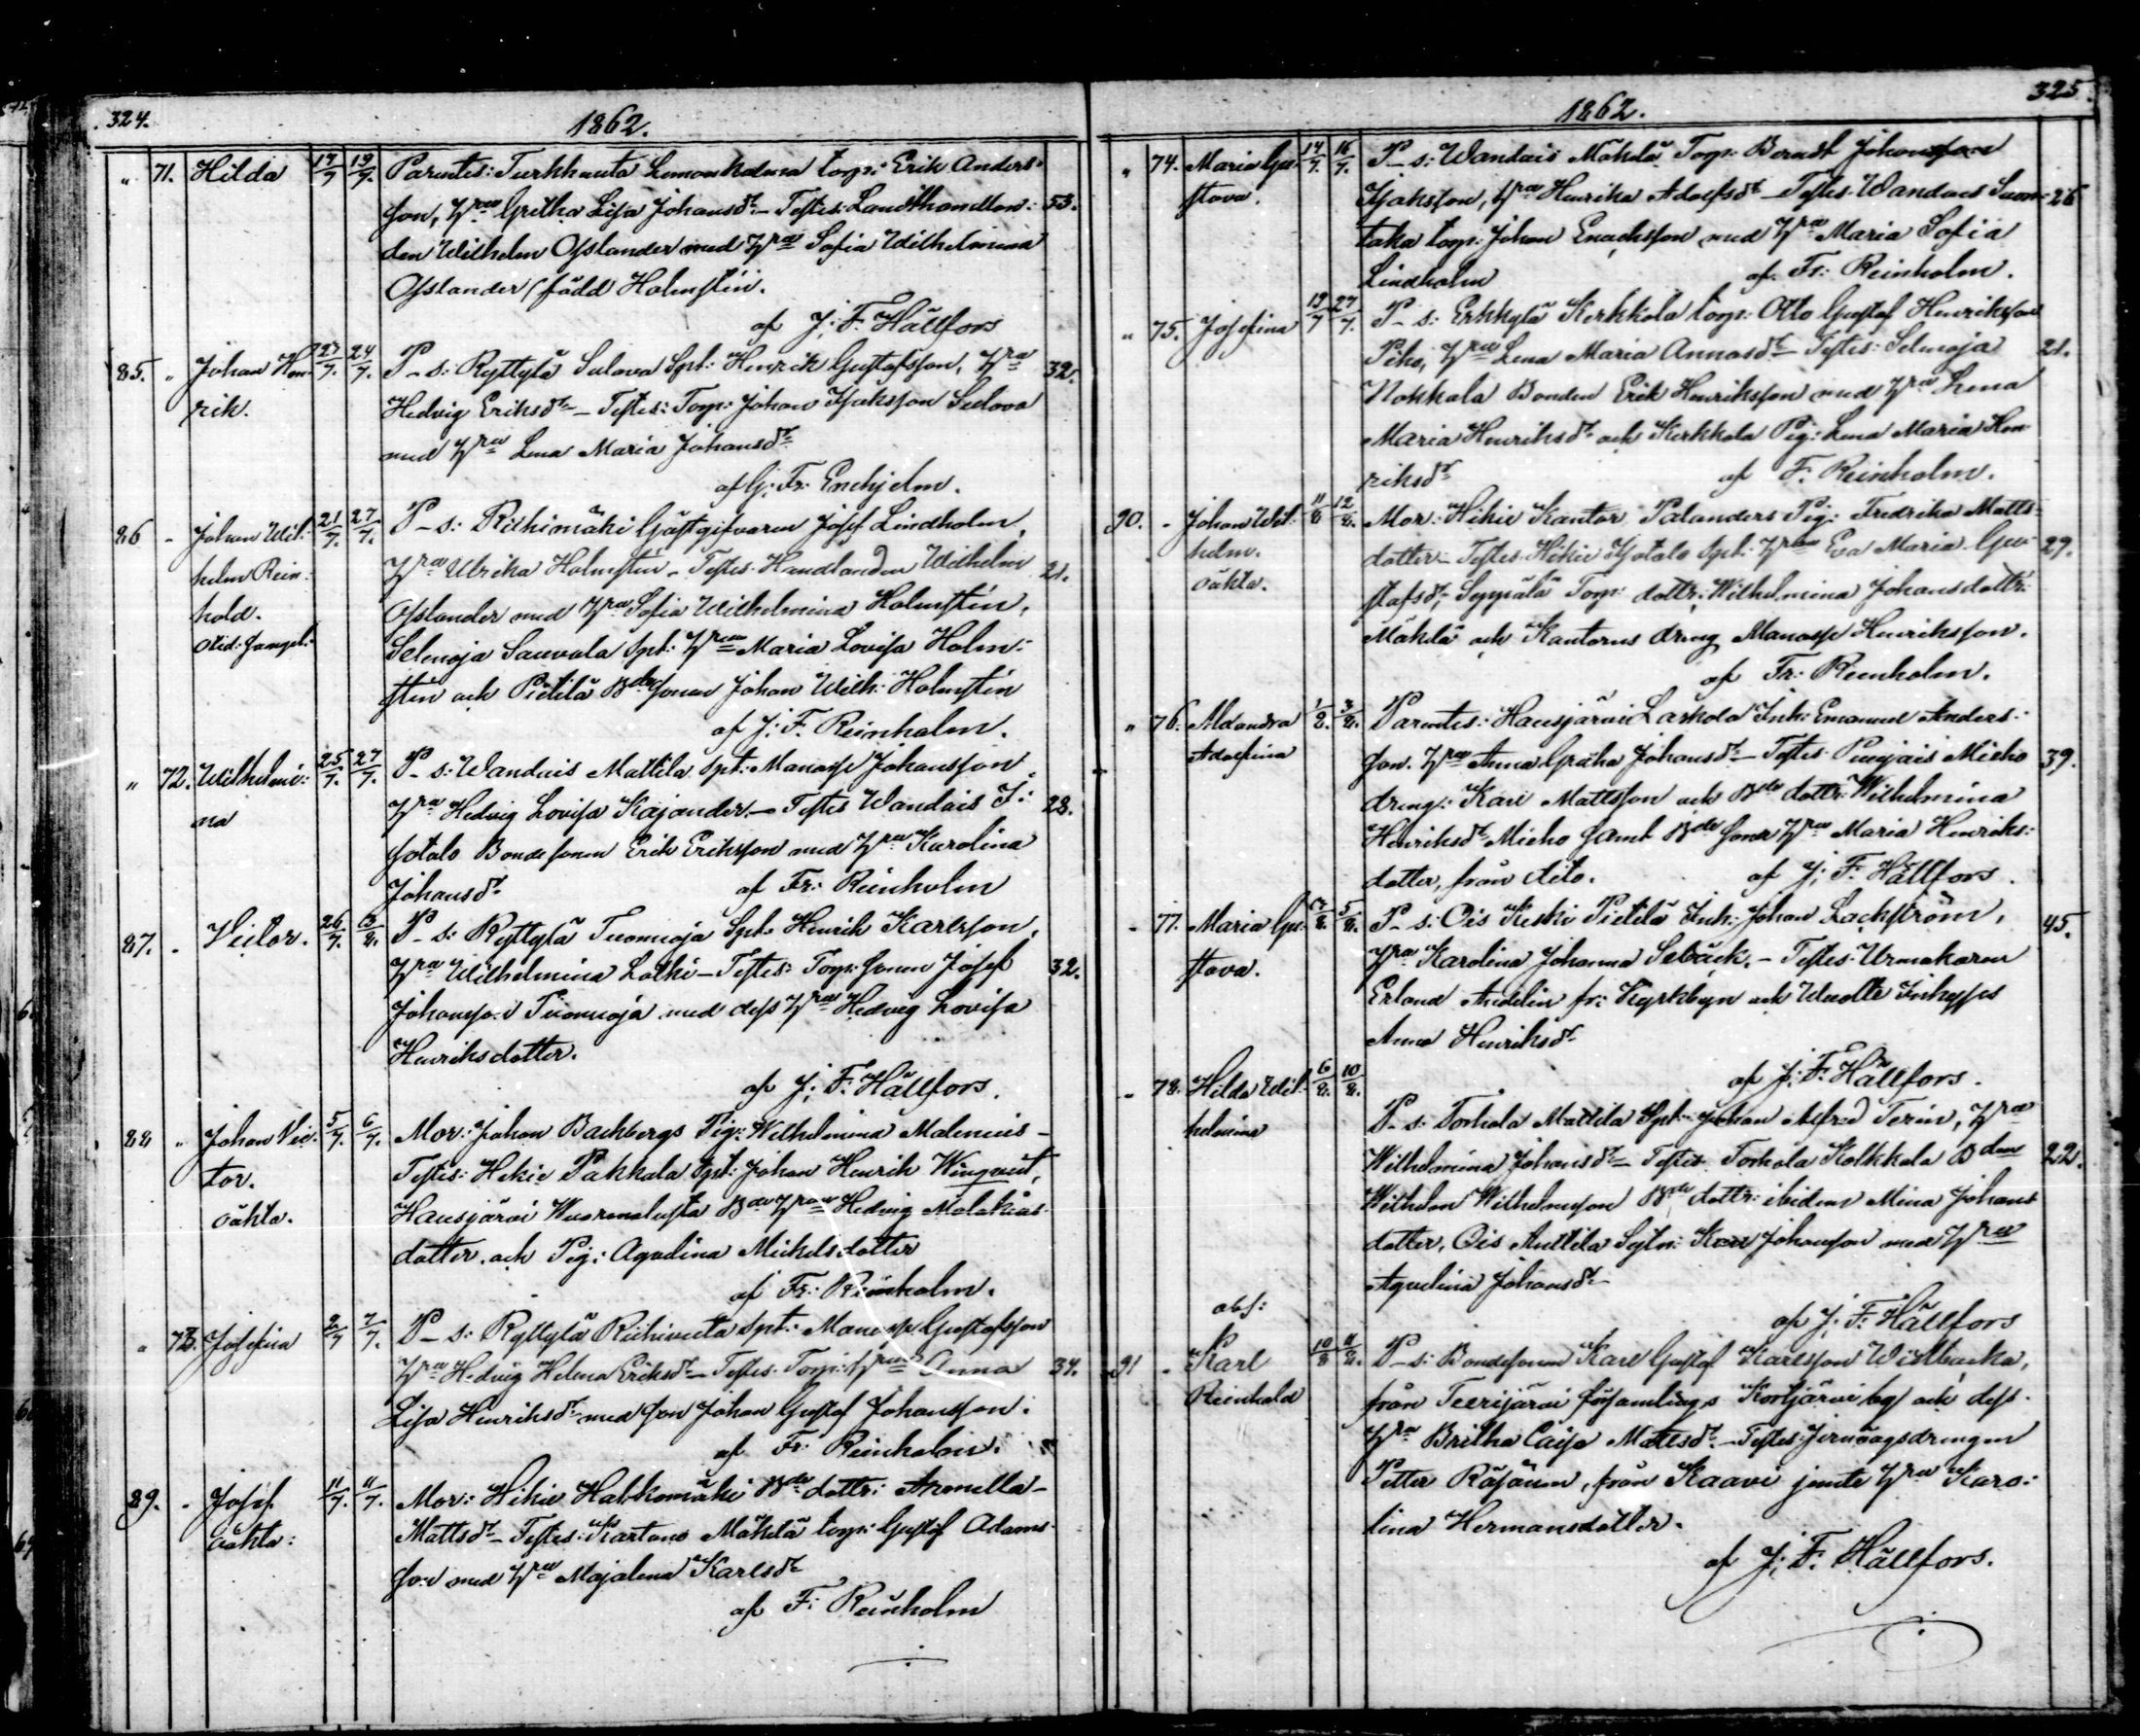 324.
1862.
" 71. Hilda 17/7 19/7. Parentes: Turkhauta torp: Erik Anders-
son, Hru Gretha Lisa Johansdr - Testes: Landthandlan- 53.
den Wilhelm Osslander med Hru Sofia Wilhelmina
Osslander (född Holmstén.
af J: F. Hällfors
85. " Johan Hen- 23/7. 24/7. P_s: Ryttylä Sulova Spt: Henrik Gustafsson, Hru 32.
rik. Hedvig Eriksdr - Testes: Torp: Johan Isaksson Sulova
med Hru Lena Maria Johansdr
af G: Fr: Enehjelm.
86 - Johan Wil- 21/7. 27/7. P_s: Riihimäki Gästgifvaren Josef Lindholm,
helm Rein- Hru Ulrika Holmstén - Testes: Handlanden Wilhelm 21.
hold. Osslander med Hru Sofia Wilhelmina Holmstén,
Selenoja Sauvala Spt: Hru Maria Lovisa Holm-
stén och Pietilä Bde sonen Johan Wilh: Holmstén
af J: F. Reinholm.
" 72. Wilhelmi- 25/7. 27/7. P_s: Wandais Mattila Spt: Manasse Johansson
na Hru Hedvig Lovisa Kajander. - Testes Wandais I- 28.
sotalo Bondesonen Erik Eriksson med Hru Karolina
Johansdr af Fr: Reinholm
87. - Victor. 26/7. 3/8. P_s: Ryttylä Tuomioja Spt: Henrik Karlsson,
Hru Wilhelmina Lathi - Testes: Torp: sonen Josef 32.
Johansson Tuomioja med dess Hru Hedvig Lovisa
Henriksdotter.
af J: F. Hällfors.
88 " Johan Vic- 5/7. 6/7. Mor: Johan Bachbergs Pig: Wilhelmina Malenius -
tor. Testes: Hikie Pakkala Spt: Johan Henrik Winqvist,
oäkta. Hausjärvi Wuorenalusta Bde Hru Hedvig Malakias-
dotter. och Pig: Agvdina Michelsdotter
af Fr: Reinholm.
" 73. Josefina 2/7 7/7. P_s: Ryttylä Riihiviita Spt: Manasse Gustafsson
Hru Hedvig Helena Eriksdr - Testes: Torp: Hru Anna 34.
Lisa Henriksdr med son Johan Gustaf Johansson.
af Fr: Reinholm.
89. - Josef. 11/7. 11/7. Mor: Hikie Halkomäki Bde dottr: Armella -
oäkta: Mattsdr - Testes: Kartano Mäkilä torp: Gustaf Adams-
son med Hru Majalena Karlsdr
af F: Reinholm

325.
1862.
" 74. Maria Gu- 14/7. 16/7. P_s: Wandais Mäkilä Torp: Berndt Johansson
stava. Isaksson, Hru Henrika Adolfsdr - Testes: Wandais Suon- 26
taka torp: Johan Enochsson med Hru Maria Sofia
Lindholm af Fr: Reinholm.
" 75. Josefina 19/7 27/7. P_s: Erkkylä Kerkkola torp: Otto Gustaf Henriksson
Piho, Hru Lena Maria Annasdr - Testes: Selenoja 21.
Nokkala Bonden Erik Henriksson med Hru Lena
Maria Henriksdr och Kerkkola Pig: Lena Maria Hen-
riksdr af F. Reinholm.
90. - Johan Wil- 11/8 12/8. Mor: Hikie Kantor Palanders Pig: Fredrika Matts-
helm. dotter - Testes: Hikie Isotalo Spt: Hru Eva Maria Gu- 29.
oäkta. stafsdr, Seppälä Torp: dottr: Wilhelmina Johansdottr:
Mäkilä och Kantorns dreng Manasse Henriksson.
af Fr: Reinholm.
" 76. Aldandra 1/8. 3/8. Parentes: Hausjärvi Laskola Inh: Emanuel Anders-
Adolfina son. Hru Anna Greta Johansdr - Testes: Puujais Mieho 39.
dreng: Karl Mattsson och Bde dottr: Wilhelmina
Henriksdr Mieho samt Bde sonen Hru Maria Henriks-
dotter, från dito. af J: F: Hällfors.
- 77. Maria Gu- 5/8. P_s: Ois Keski Pietilä Inh: Johan Lackström, 45.
stava. Hru Karolina Johanna Sebäck. - Testes: Urmakaren
Erland Andelin fr: Kyrkbyn och Inhyses
Anna Henriksdr
af J: F: Hällfors.
- 78. Hilda Wil- 6/8. 10/8. P_s: Torhola Mattila Spt: Johan Alfred Terin, Hru
helmina Wilhelmina Johansdr - Testes: Torhola Kolkkala Bden 22.
Wilhelm Wilhelmsson Bde dottr: ibidem Mina Johans-
dotter, Ois Anttila Sytn: Karl Johansson med Hru
Aqvelina Johansdr
af J: F. Hällfors
obs:
91 - Karl 10/8 11/8. P_s: Bondesonen Karl Gustaf Karlsson Wistbacka,
Reinhold från Teerijärvi församlings Kortjärvi by och dess
Hru Britha Caisa Mattsdr. - Testes: Jernvägsdrengen
Petter Räsänen, från Kaavi jemte Hru Karo-
lina Hermansdotter.
af J: F. Hällfors.